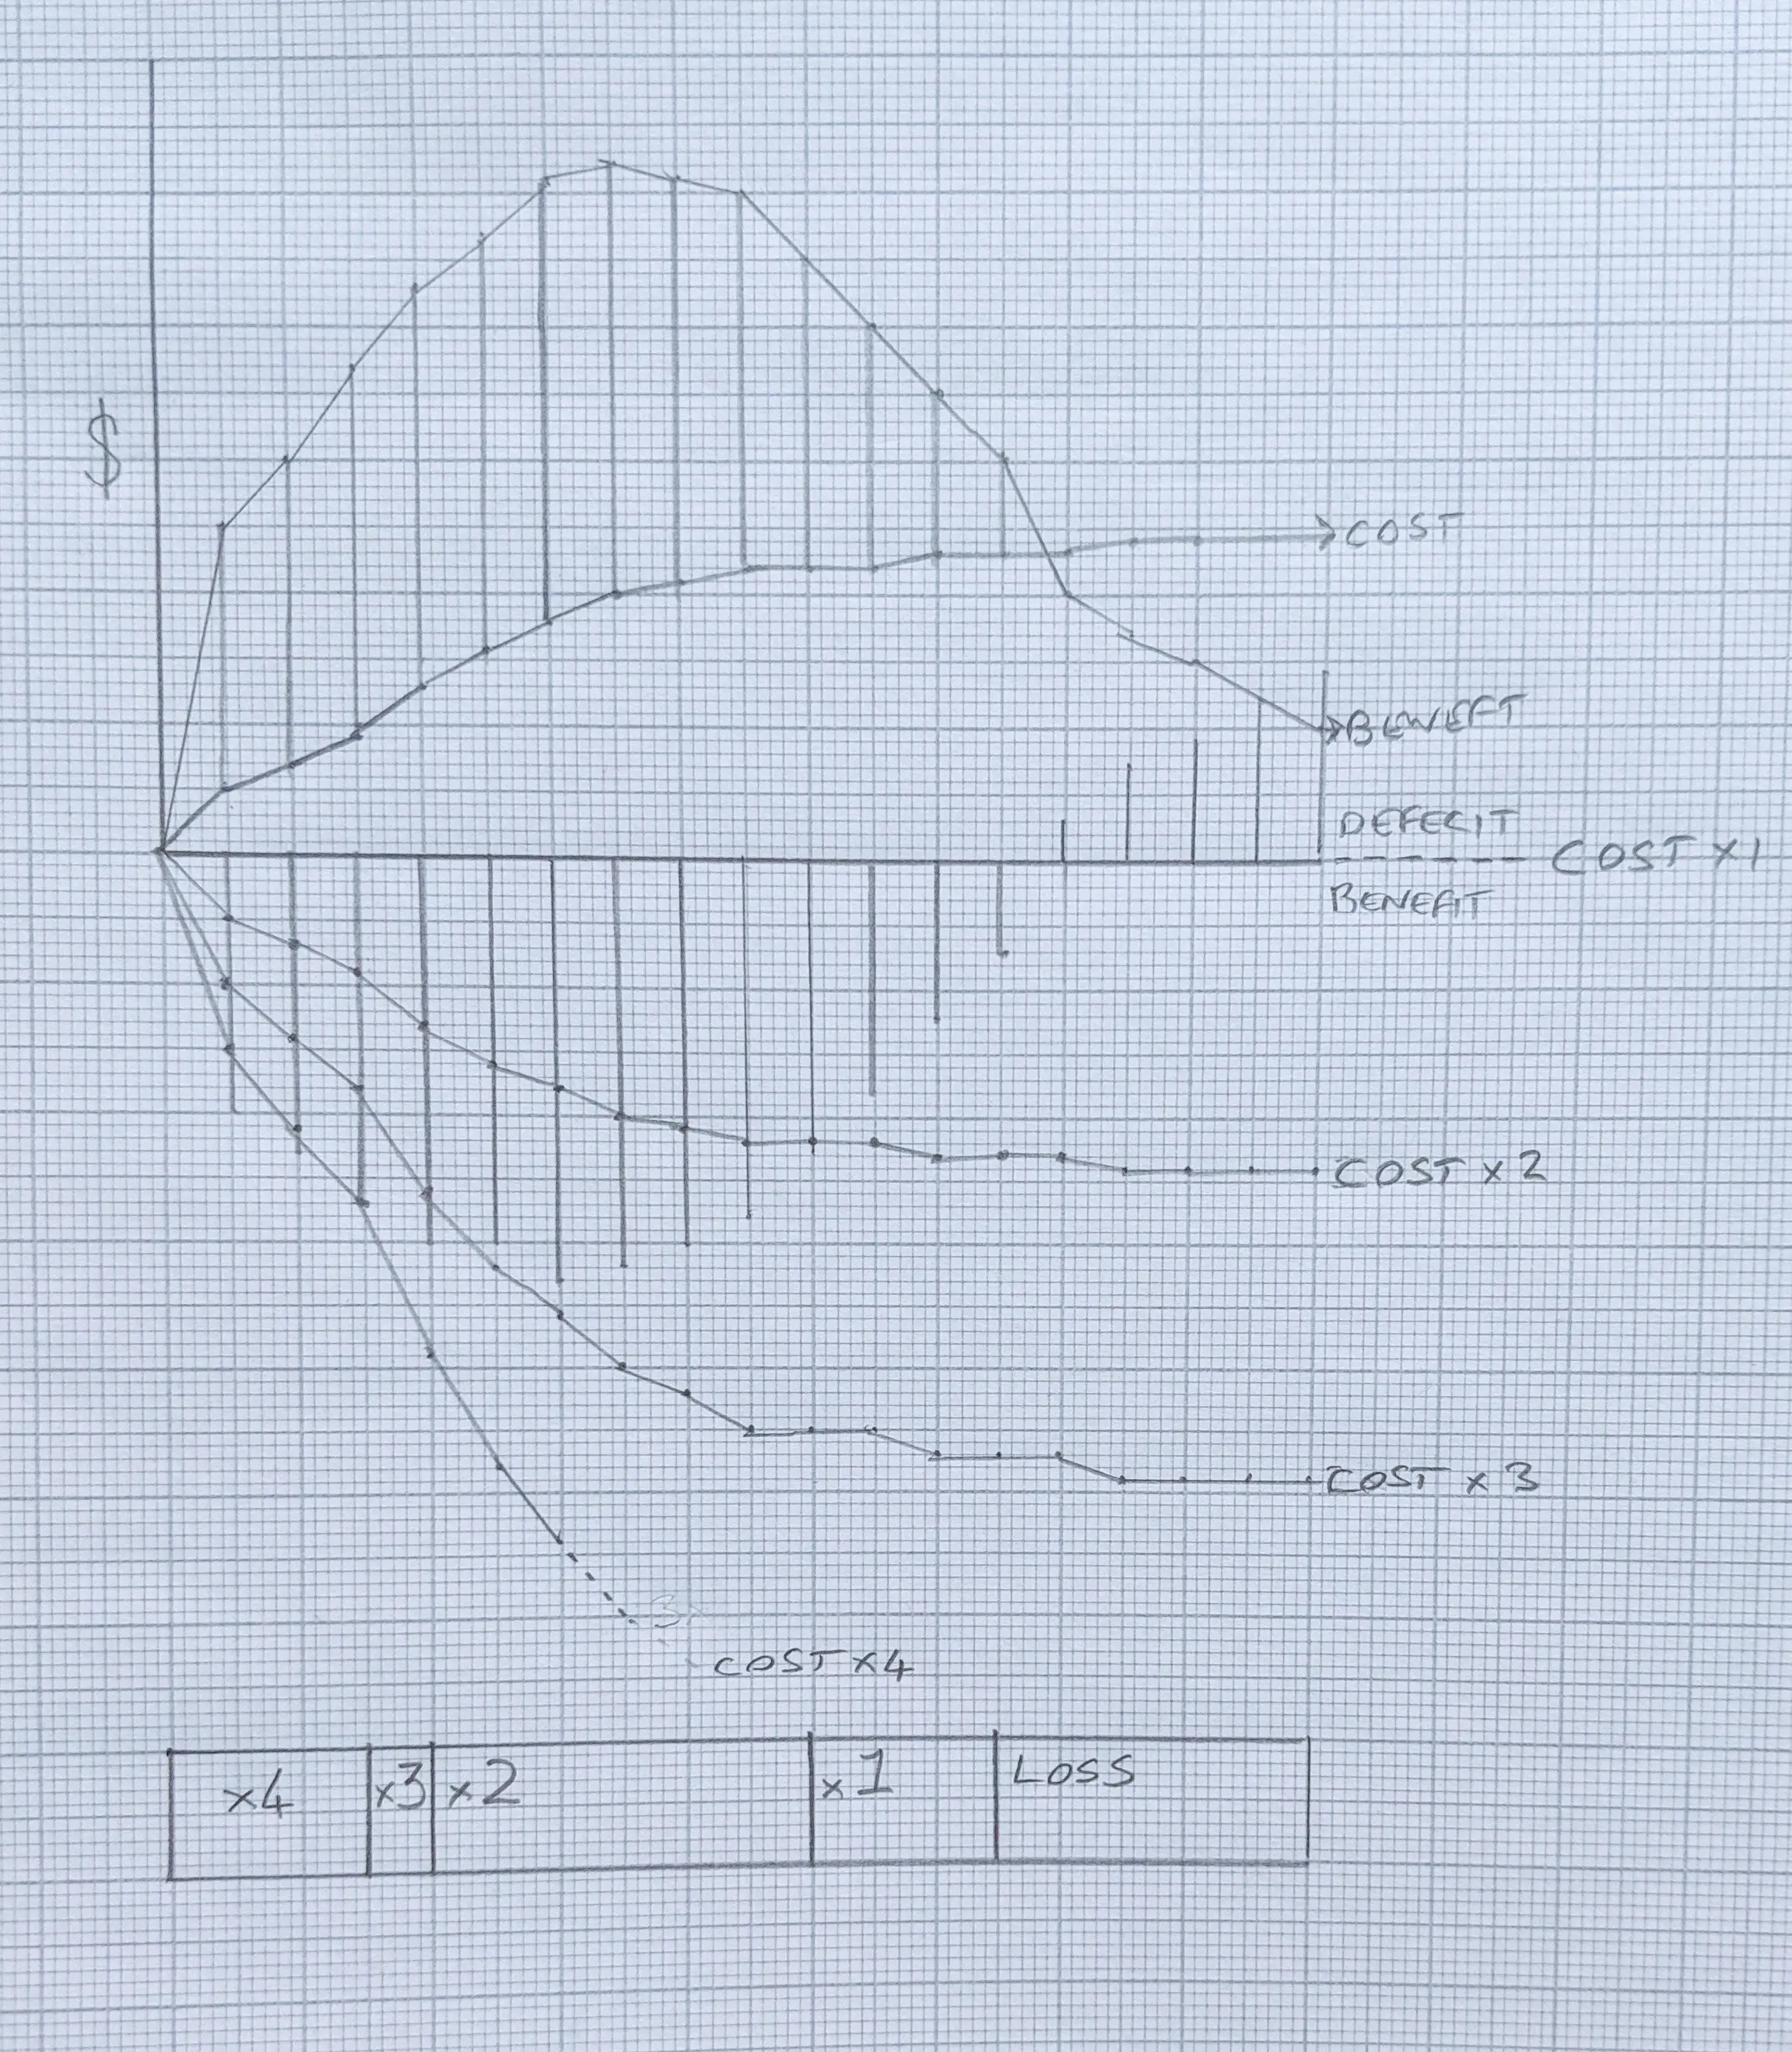 $
COST
BENEFT
DEFECIT
COST x1
BENEFIT
COST x 2
COST x 3
COST x4
x4
x3
x2
x1
LOSS